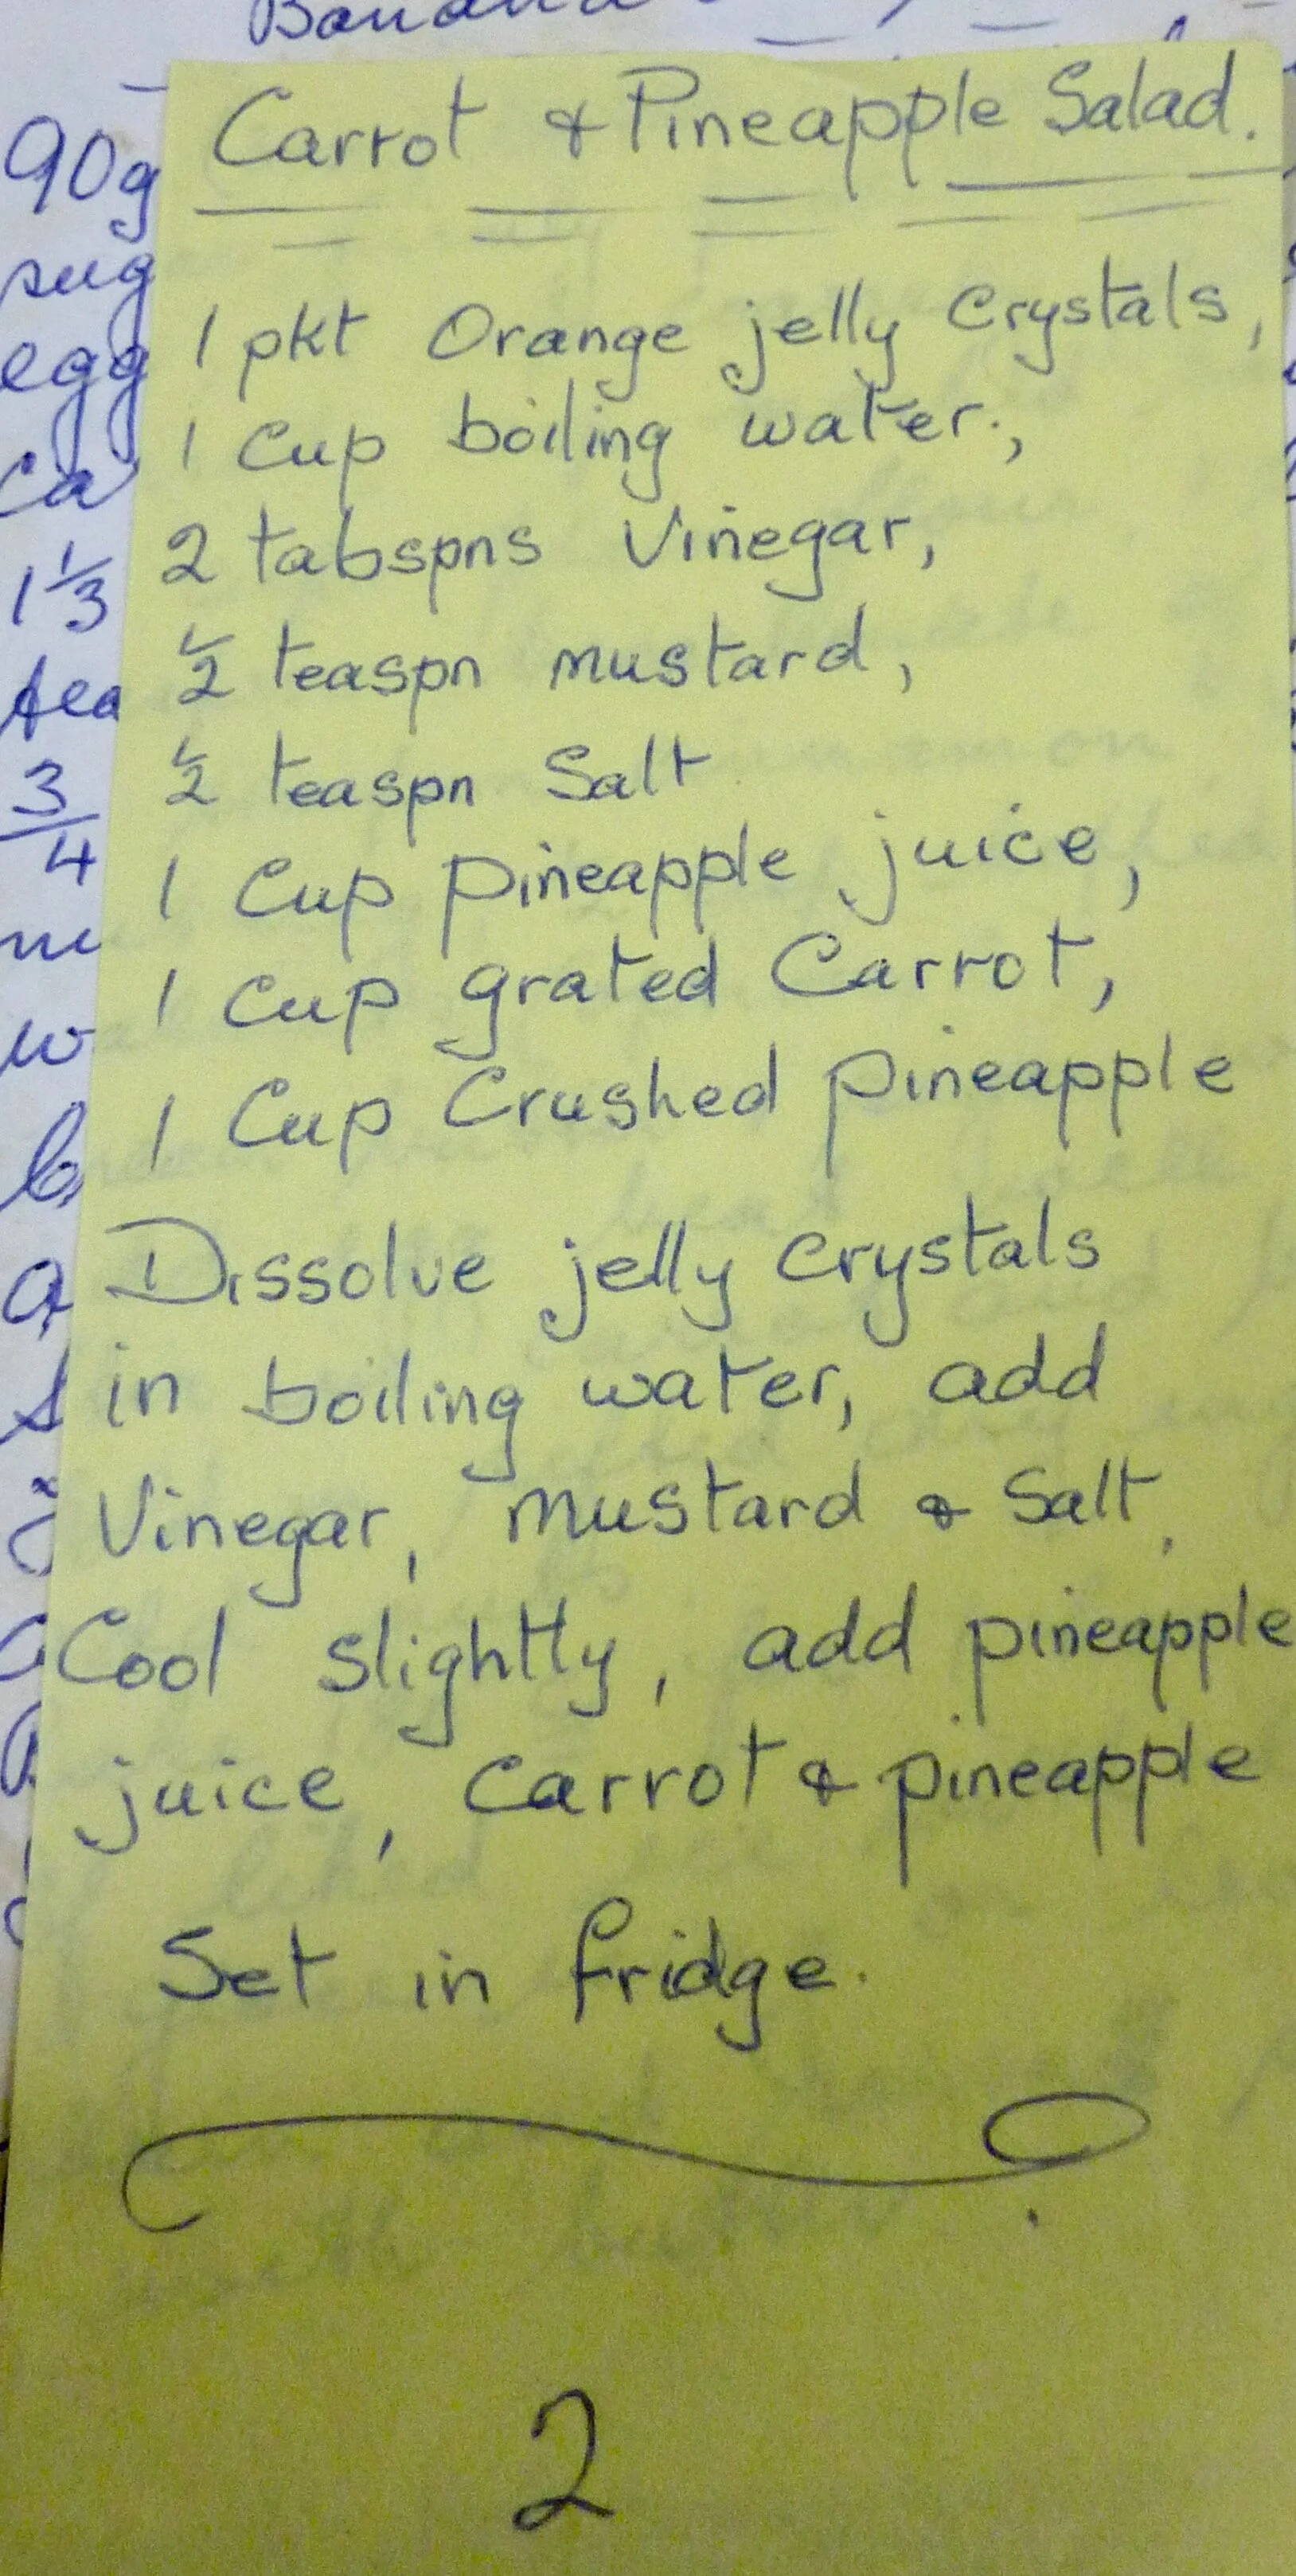 Banana
Carrot & Pineapple Salad.
90g
sug
egg
ca
1 1/3
tea
3/4
1 pkt Orange jelly Crystals,
1 Cup boiling water.,
2 tabspns Vinegar,
1/2 teaspn mustard,
1/2 teaspn Salt
1 Cup pineapple juice,
1 Cup grated Carrot,
1 Cup Crushed pineapple
Dissolve jelly crystals
in boiling water, add
Vinegar, mustard & Salt.
Cool slightly, add pineapple
juice, Carrot & pineapple
Set in fridge.
2